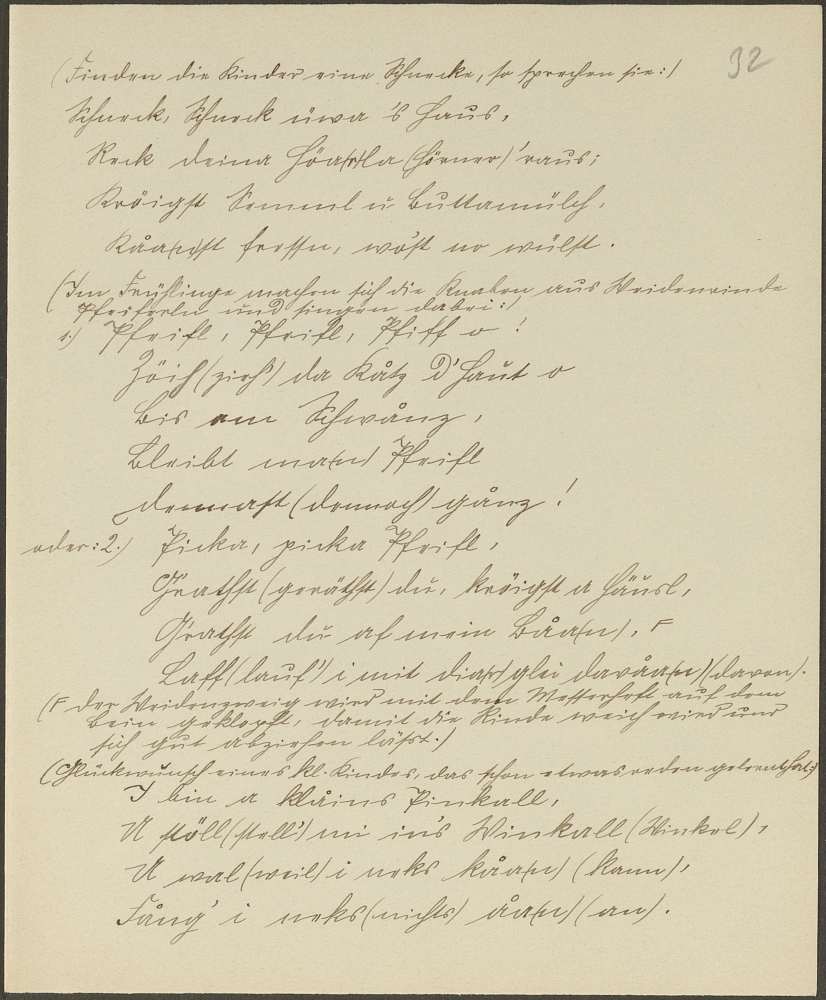 32
(Finden die Kinder eine Schnecke, so sprechen sie:)
Schneck, Schneck üwa 's Haus,
Reck deina Höa(r)la (Hörner) 'raus;
Kröigst Semml u Buttamülch,
Kåa(n)st fressn, wöist no wülst.
(Im Frühlinge machen sich die Knaben aus Weidenrinde
Pfeiferln und singen dabei:)
1.) Pfeifl, Pfeifl, Pfiff o!
Zöich (zieh') da Kåtz d' Haut o
Bis am Schwånz,
Bleibt ma(n) Pfeifl
dennast (dennoch) gånz!
oder: 2.) Picka, picka Pfeifl,
G'rathst (geräthst) du, kröigst a Häusl,
G'rathst du af mein Båa(n), F
Laff (lauf') i mit dia(r) glei davåa(n) (davon).
(F Der Weidenzweig wird mit dem Messerheft auf dem
Bein geklopft, damit die Rinde weich wird und
sich gut abziehen läßt.)
(Glückwunsch eines kl. Kindes, das schon etwas reden gelernt hat:)
I bin a klåins Pinkall,
U stöll (stell') mi in's Winkall (Winkel),
U wal (weil) i neks kåa(n) (kann),
Fång' i neks (nichts) åa(n) (an).